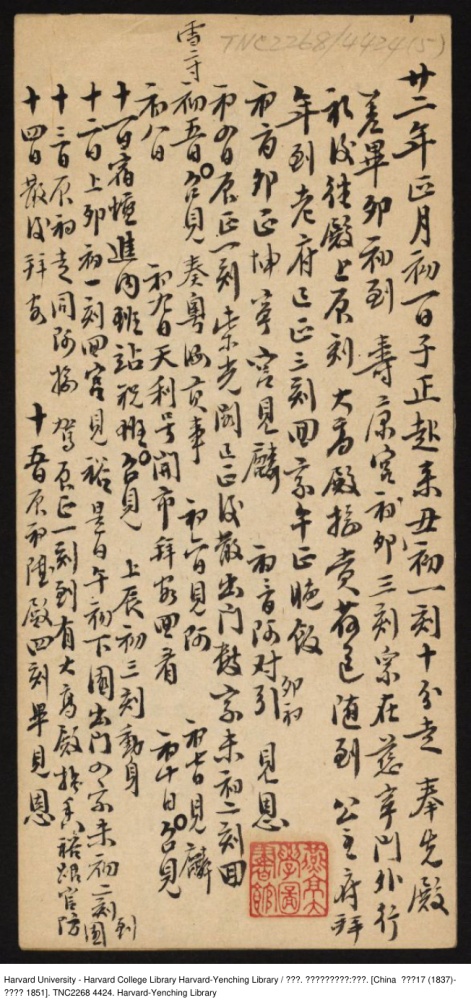 TNC2268/4424(5)
廿二年正月初一日子正起来丑初一刻十分走 奉先殿
差畢卯初到 壽康宮初卯三刻 宗在慈寧門外行
礼後往殿上辰刻 大高殿 賞荷包随到 公主府拜
年到老府巳正三刻回家午正晚飯
初二日卯正坤寧宮見麟 初三日阿对引 卯初見恩
初四日辰正一刻紫光閣巳正後散出門 家未初二刻回
雪一寸 初五日召見奏粵海貢事 初六日見阿 初七日見麟
初八日 初九日天利号開市拜客回看 初十日召見
十一日宿壇進内班站祝班召見 上辰初三刻動身
十二日上卯初一刻回宮見裕是日午初下園出門回家未初二刻到園
十三日辰初走同阿 駕辰正一刻到有大高殿 裕 官防
十四日散後拜客 十五日辰初陞殿四刻畢見恩
燕京大學圖書館
Harvard University - Harvard College Library Harvard-Yenching Library / ???. ?????????:???. [China ???17 (1837)-
???? 1851]. TNC2268 4424. Harvard-Yenching Library